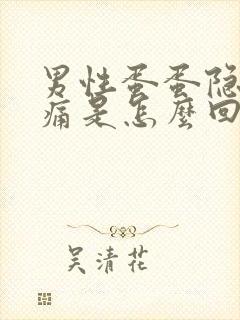 男性蛋蛋隐
痛是怎麼回
吴清花